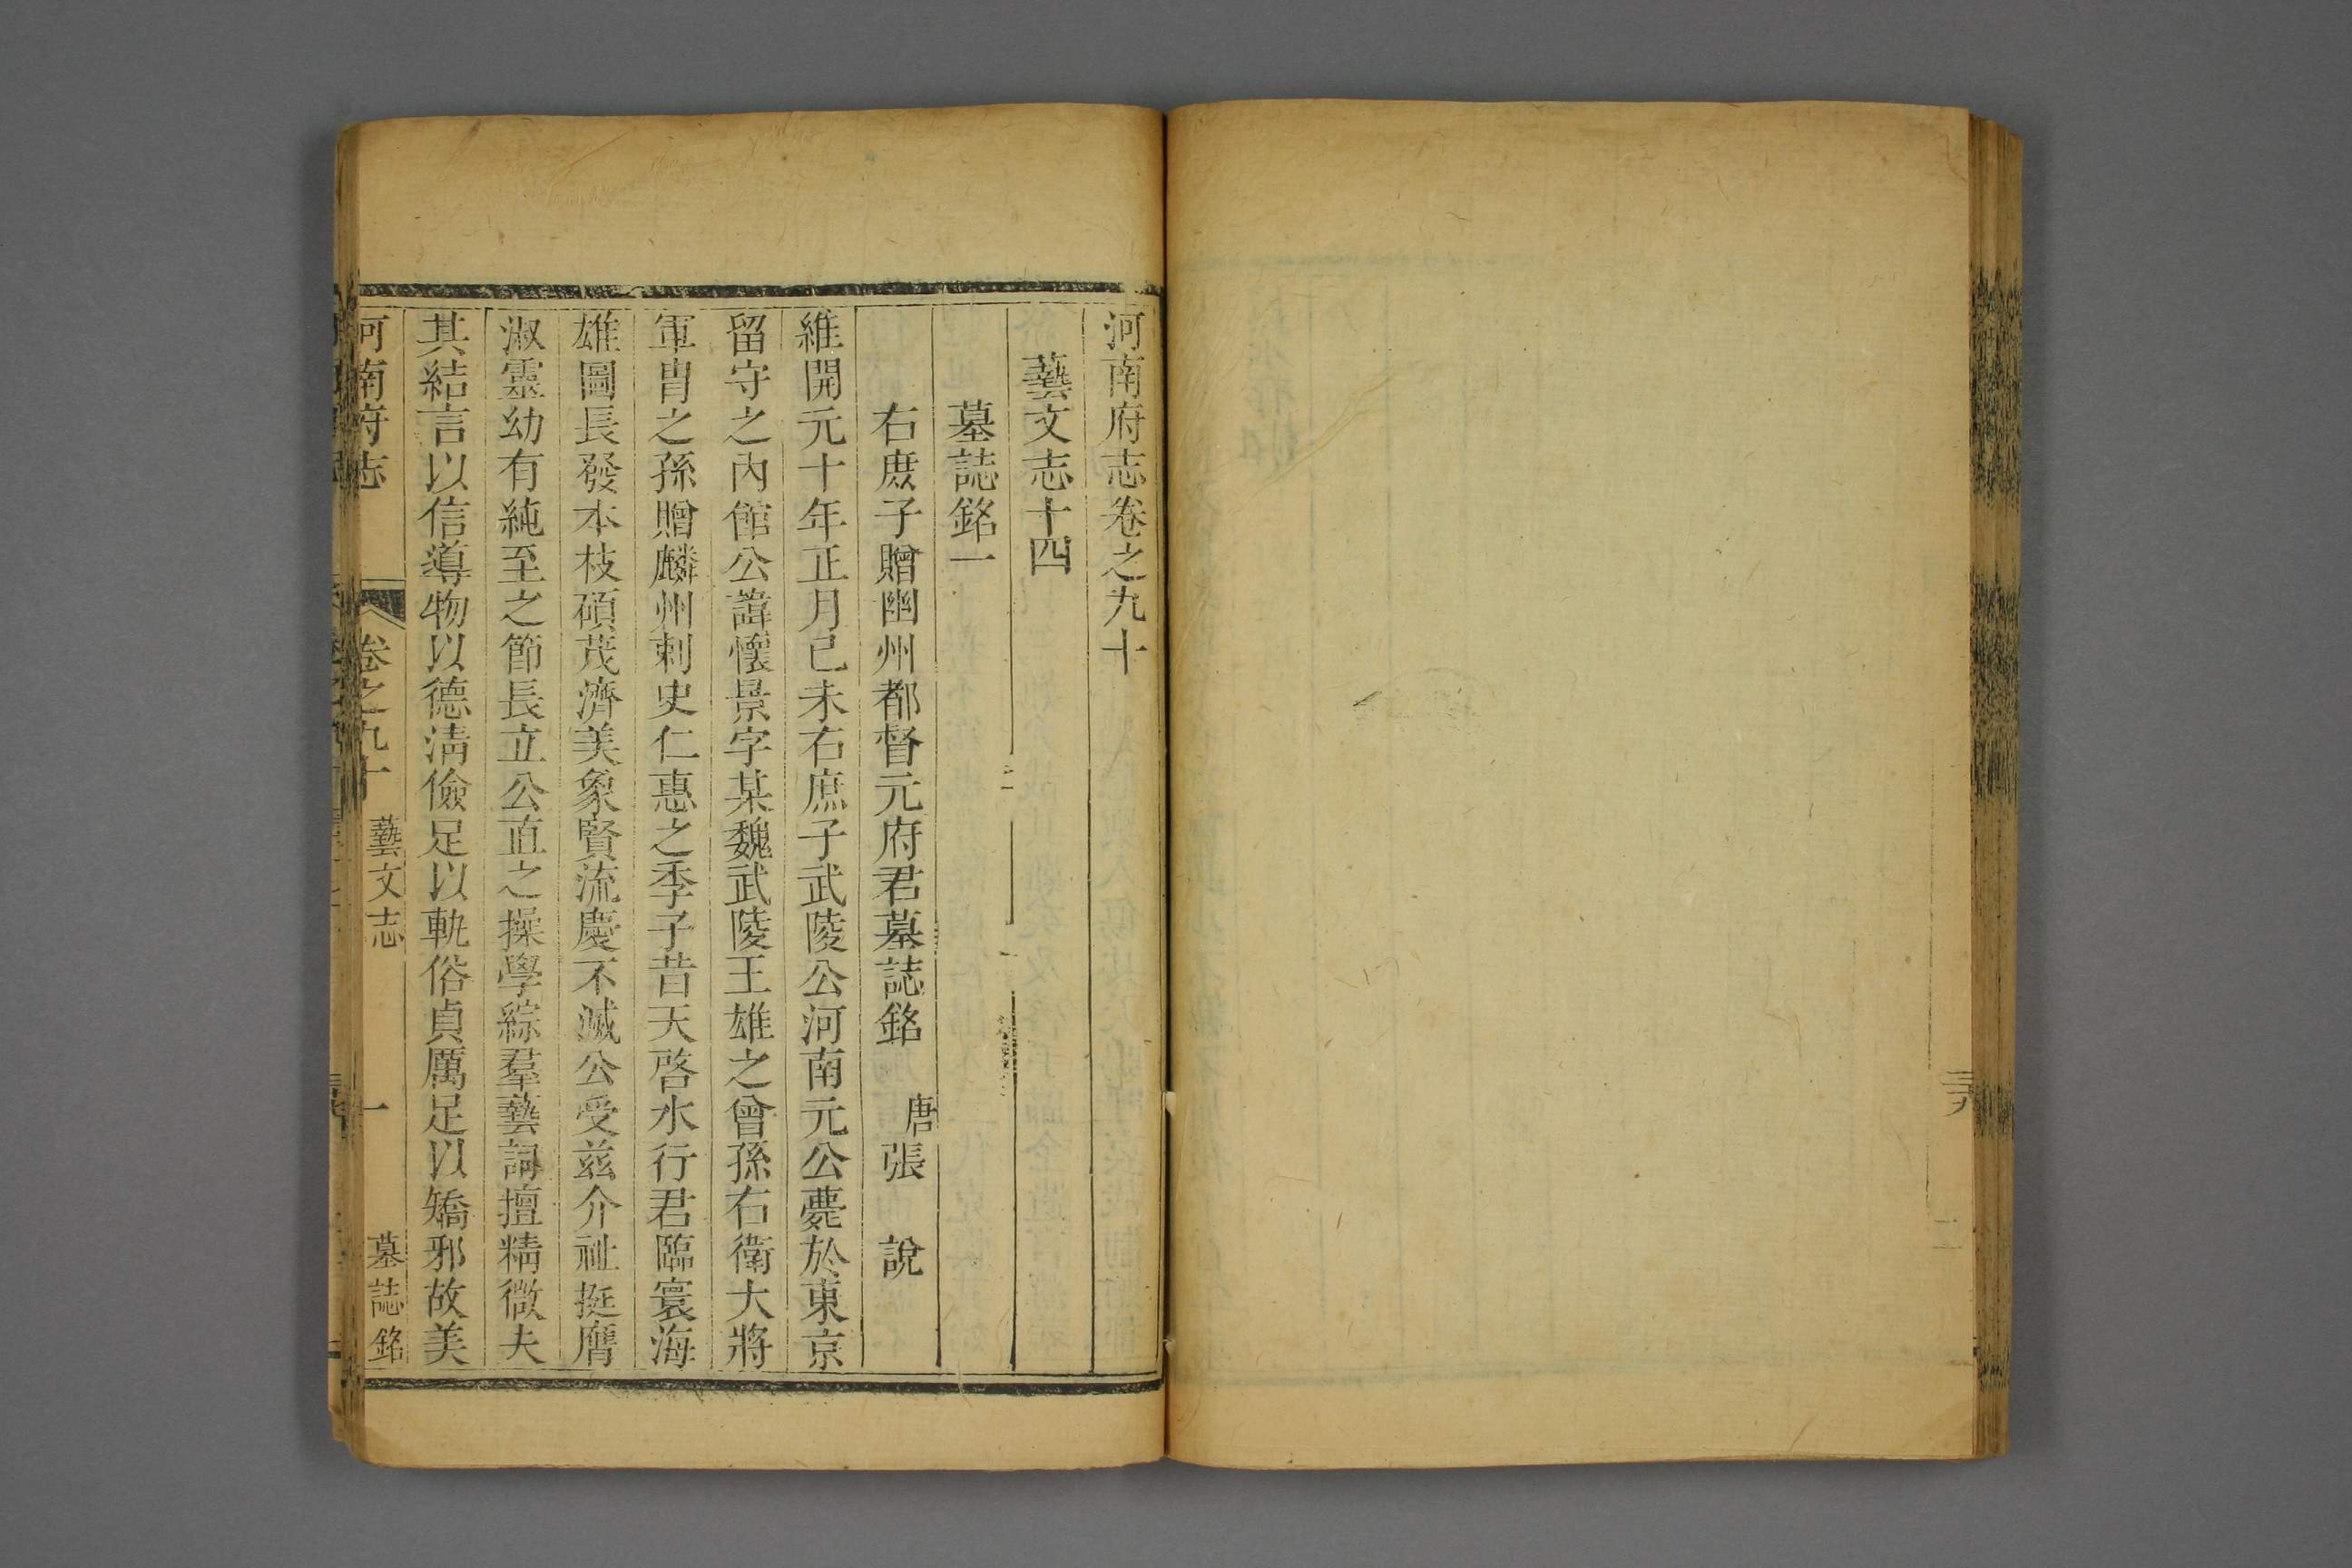 河南府志卷之九十
藝文志十四
墓誌銘一
右庶子贈幽州都督元府君墓誌銘 唐張 說
維開元十年正月己未右庶子武陵公河南元公薨於東京
留守之內館公諱懷景字某魏武陵王雄之曾孫右衛大將
軍胄之孫贈麟州刺史仁惠之季子昔天啓水行君臨寰海
雄圖長發本枝碩茂濟美象賢流慶不滅公受兹介祉挺膺
淑靈幼有純至之節長立公直之操學綜羣藝詞擅精微夫
其結言以信導物以德淸儉足以軌俗貞厲足以矯邪故美
河南府志 卷之九十 藝文志 一 墓誌銘